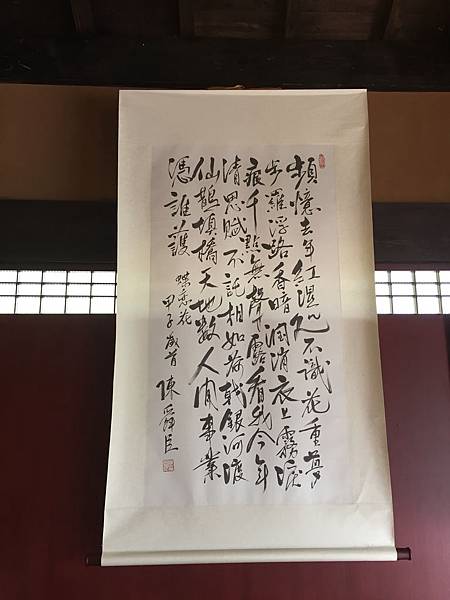 頻憶去年紅濕処不識花重夢
步羅浮路香暗潤消衣上霧淚
痕千點無聲露看我今年
清思賦不託相如荷戟銀河渡
仙鵲填橋天地數人間事業
憑誰護
蝶恋花
甲子歲首
陳舜臣